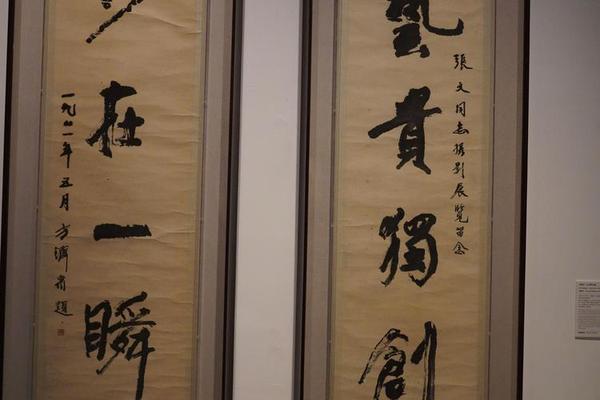 藝貴獨創
張文同志攝影展覽留念
在一瞬
一九八一年五月方濟眾題